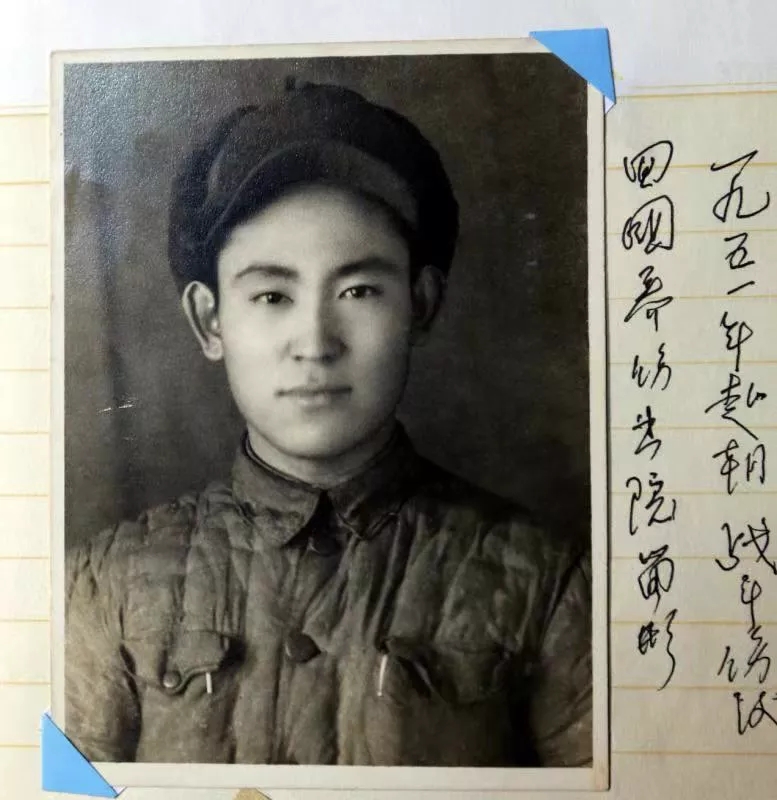 一九五一年赴朝战斗伤
回國养伤出院留影